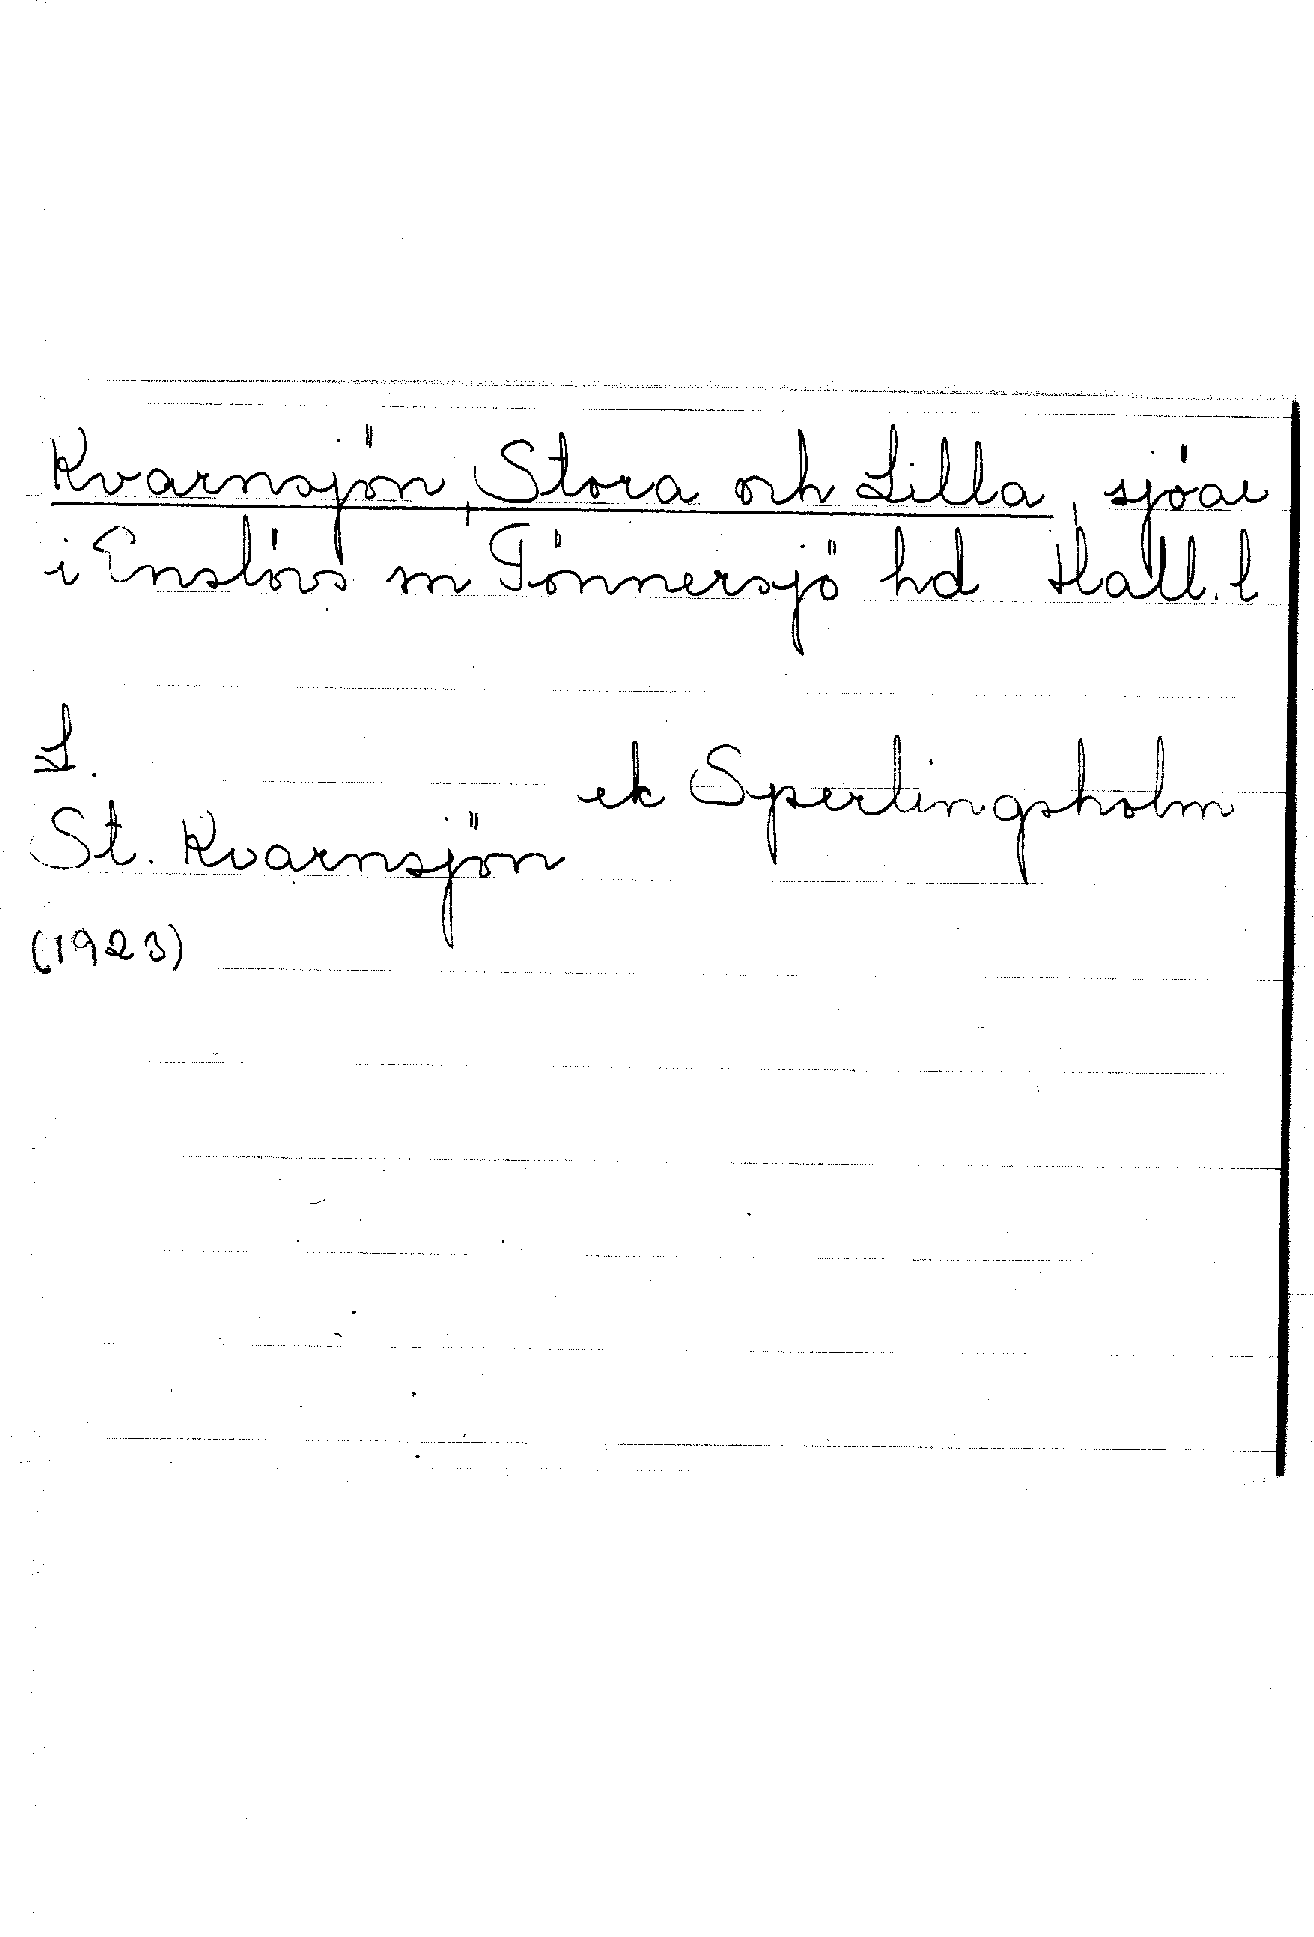 Kvarnsjön, Stora och Lilla, sjöar
i Enslövs sn Tönnersjö hd Hall. l
L.
ek Sperlingsholm
St. Kvarnsjön
(1923)